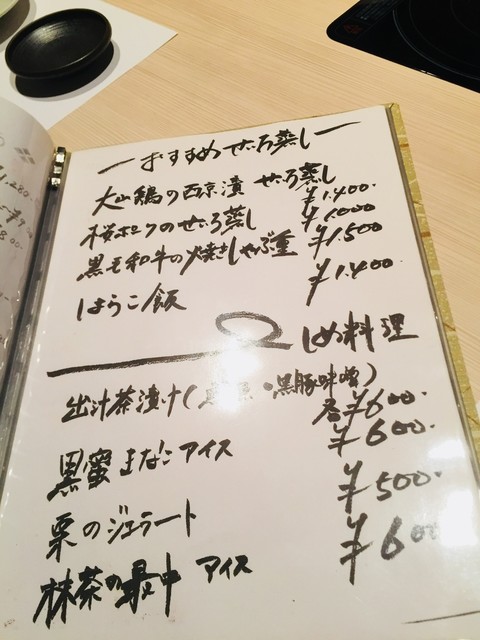 おすすめ せいろ蒸し
大山鶏の西京漬 せいろ蒸し ¥1.400.
桜ポークのせいろ蒸し ¥1.000
黒毛和牛の焼きしゃぶ重 ¥1.500
はらこ飯 ¥1.400.
しめ料理
出汁茶漬け( ・黒豚味噌) 各¥600.
黒蜜きなこアイス ¥600.
栗のジェラート ¥500.
抹茶の最中 アイス ¥600
1,280